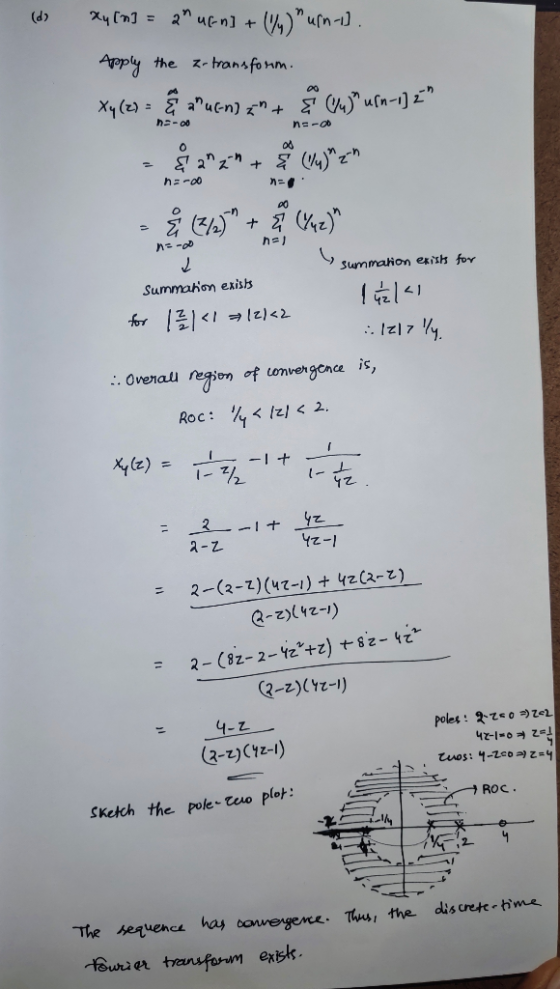 (d) x₄[n] = 2ⁿ u[-n] + (1/4)ⁿ u[n-1].
Apply the z-transform.
X₄(z) = Σ_{n=-∞}^{∞} 2ⁿ u[-n] z⁻ⁿ + Σ_{n=-∞}^{∞} (1/4)ⁿ u[n-1] z⁻ⁿ
= Σ_{n=-∞}^{0} 2ⁿ z⁻ⁿ + Σ_{n=}^{∞} (1/4)ⁿ z⁻ⁿ
= Σ_{n=-∞}^{0} (z/2)⁻ⁿ + Σ_{n=1}^{∞} (1/4z)ⁿ
Summation exists
for |z/2| < 1 ⇒ |z| < 2
Summation exists for
|1/4z| < 1
∴ |z| > 1/4.
∴ Overall region of convergence is,
ROC: 1/4 < |z| < 2.
X₄(z) = 1/(1 - z/2) - 1 + 1/(1 - 1/4z).
= 2/(2-z) - 1 + 4z/(4z-1)
= (2-(2-z)(4z-1) + 4z(2-z))/((2-z)(4z-1))
= (2-(8z-2-4z²+z) + 8z-4z²)/((2-z)(4z-1))
= (4-z)/((2-z)(4z-1))
poles: 2-z=0 ⇒ z=2
4z-1=0 ⇒ z=1/4
zeros: 4-z=0 ⇒ z=4
Sketch the pole-zero plot:
→ ROC.
-1/4 1/4 2 4
The sequence has convergence. Thus, the discrete-time
fourier transform exists.